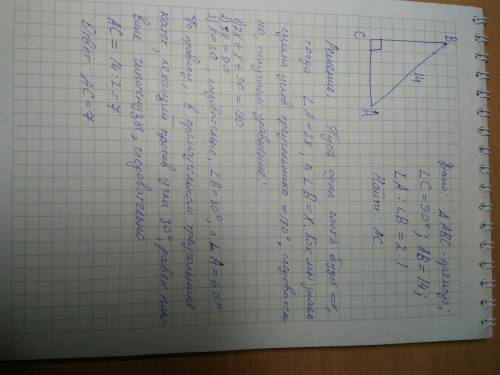 C
B
A
14
Дано: Δ ABC-прямоуг;
∠C=90°; AB=14;
∠A : ∠B = 2:1
Найти: AC
Решение: Пусть одна часть будет =x,
тогда ∠A=2x, а ∠B=x. Как мы знаем
сумма углов треугольника =180°, следователь
но, получаем уравнение:
1) 2x+x+90=180
2) 3x=90
3) x=30, следовательно, ∠B=30°, а ∠A=60°
По правилу, в прямоугольном треугольнике
катет, лежащий против угла 30°, равен поло
вине гипотенузы, следовательно
AC = 14:2=7
Ответ: AC=7.